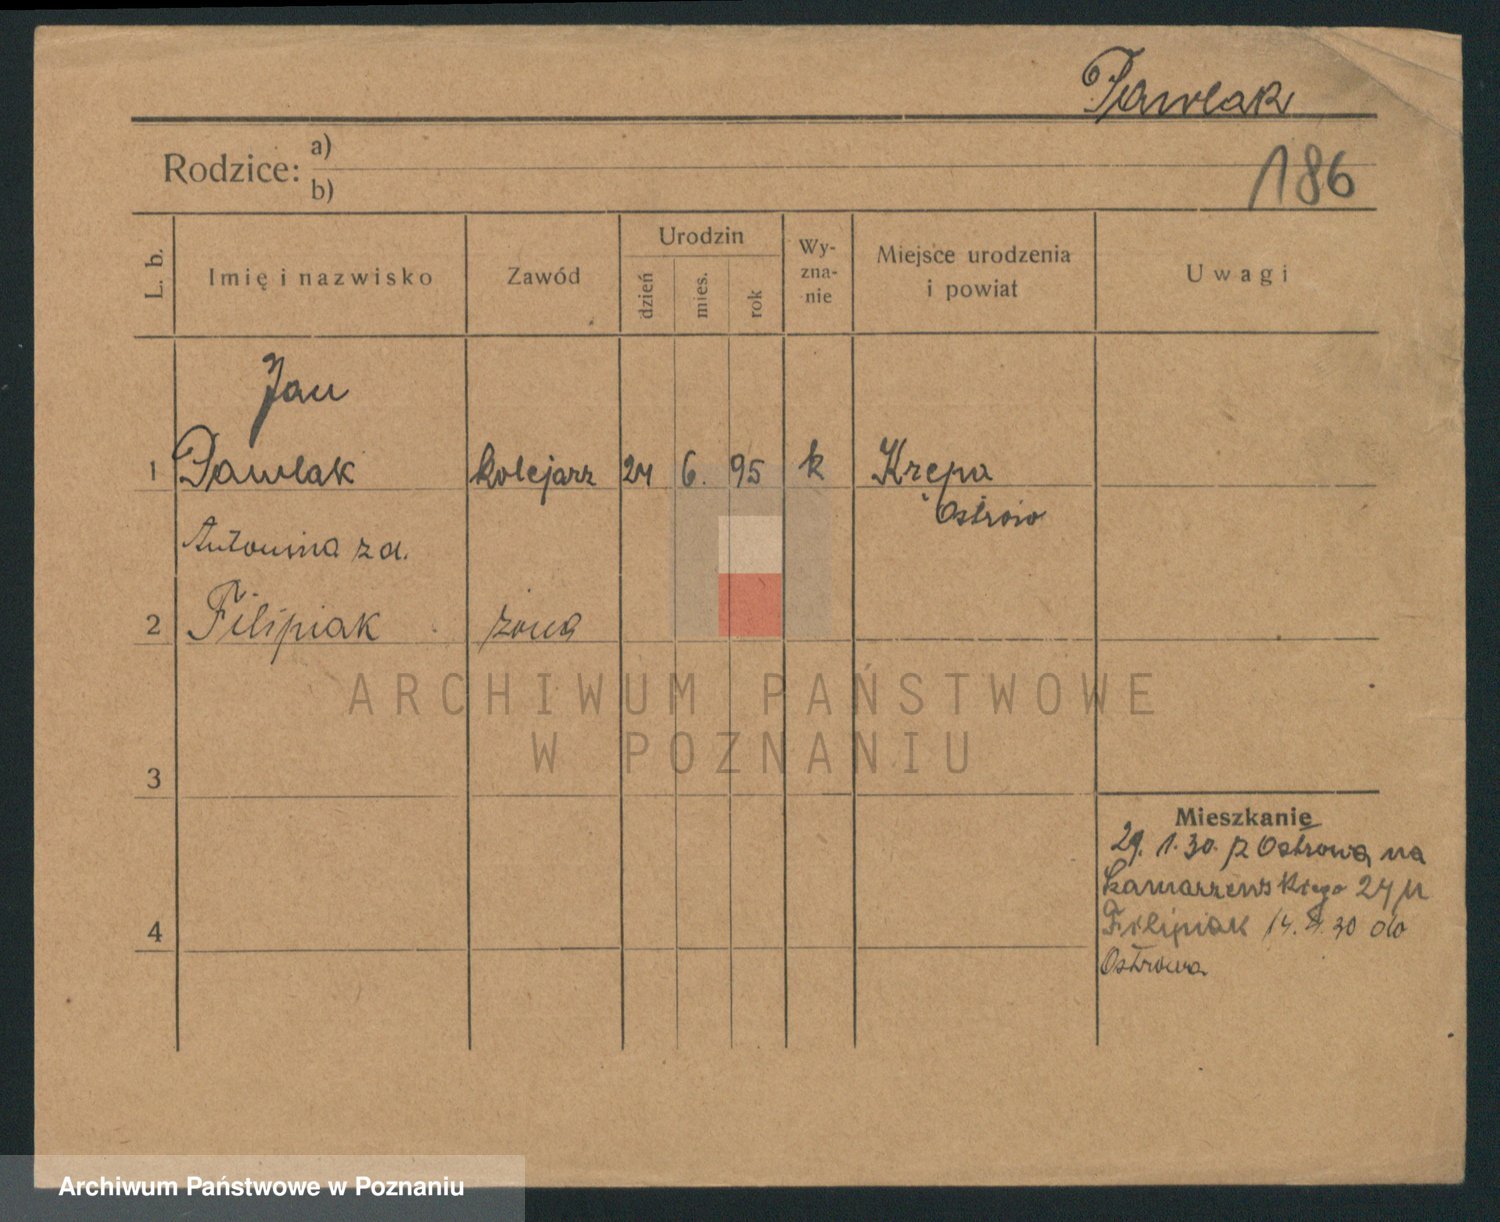 Pawlak
Rodzice: a)
b)
186
L. b.
Imię i nazwisko
Zawód
Urodzin
dzień
mies.
rok
Wy-
zna-
nie
Miejsce urodzenia
i powiat
Uwagi
Jan
1 Pawlak kolejarz 24 6. 95 k Krępa
Ostrów
Antonina z d.
2 Filipiak żona
ARCHIWUM PAŃSTWOWE
W POZNANIU
3
Mieszkanie
29. 1. 30. z Ostrowa na
24
4
Filipiak 14. 30 do
Ostrowa
Archiwum Państwowe w Poznaniu